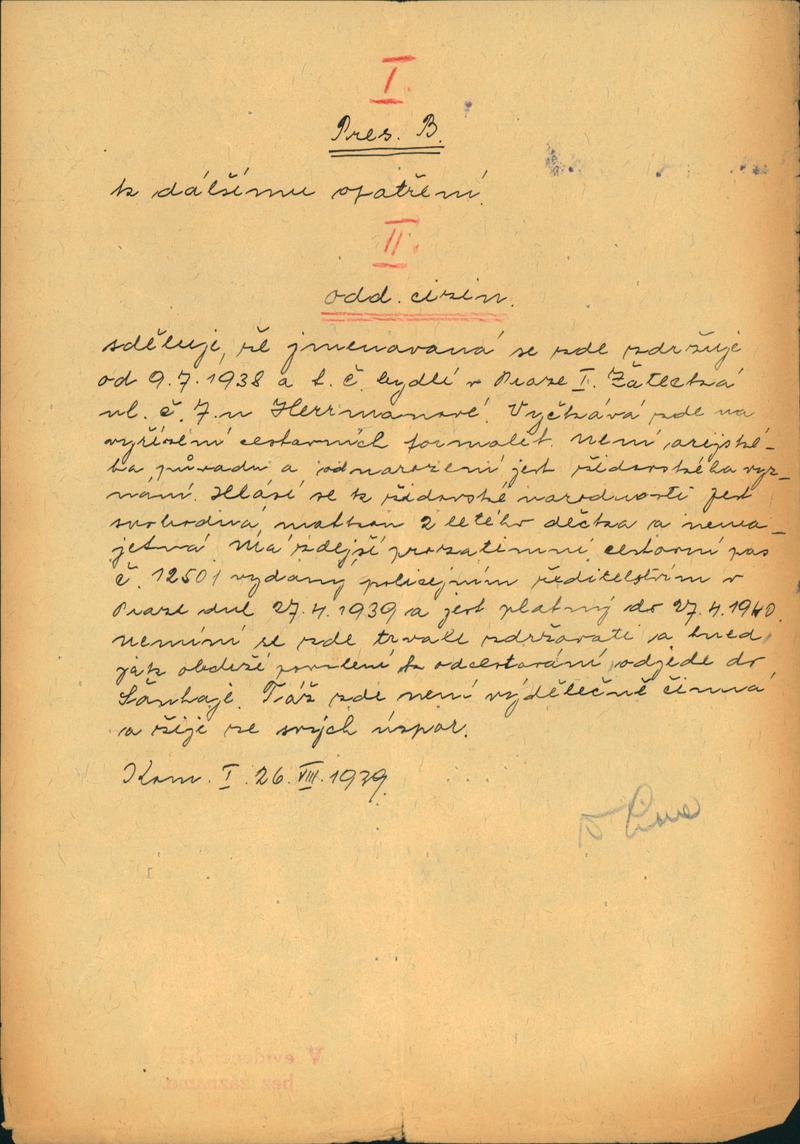 I.
Pres. B.
k dálšímu opatření.
II.
odd. cizin.
sděluje, že jmenavaná se zde zdržuje
od 9.7.1938 a t. č. bydlí v Praze I. Žatecká
ul. č. 7. u Herrmanové. Vyčkává zde na
vyřízení cestovních formalit. Není arijské-
ho původu a od narození jest židovského vyz-
nání. Hlásí se k židovské národnosti jest
svobodná, matkou 2 letého děcka a nema-
jetná. Má zdejší prozatimní cestovní pas
č. 12501 vydaný policejním ředitelstvím v
Praze dne 27.4.1939 a jest platný do 27.4.1940.
Nemíní se zde trvale zdržovati a hned,
jak obdrží povolení k odcestování odjede do
Šanhaje. Táž zde není výdělečně činná
a žije ze svých úspor.
Kom. I. 26. VIII. 1939.
V evidenci
bez záznamu.